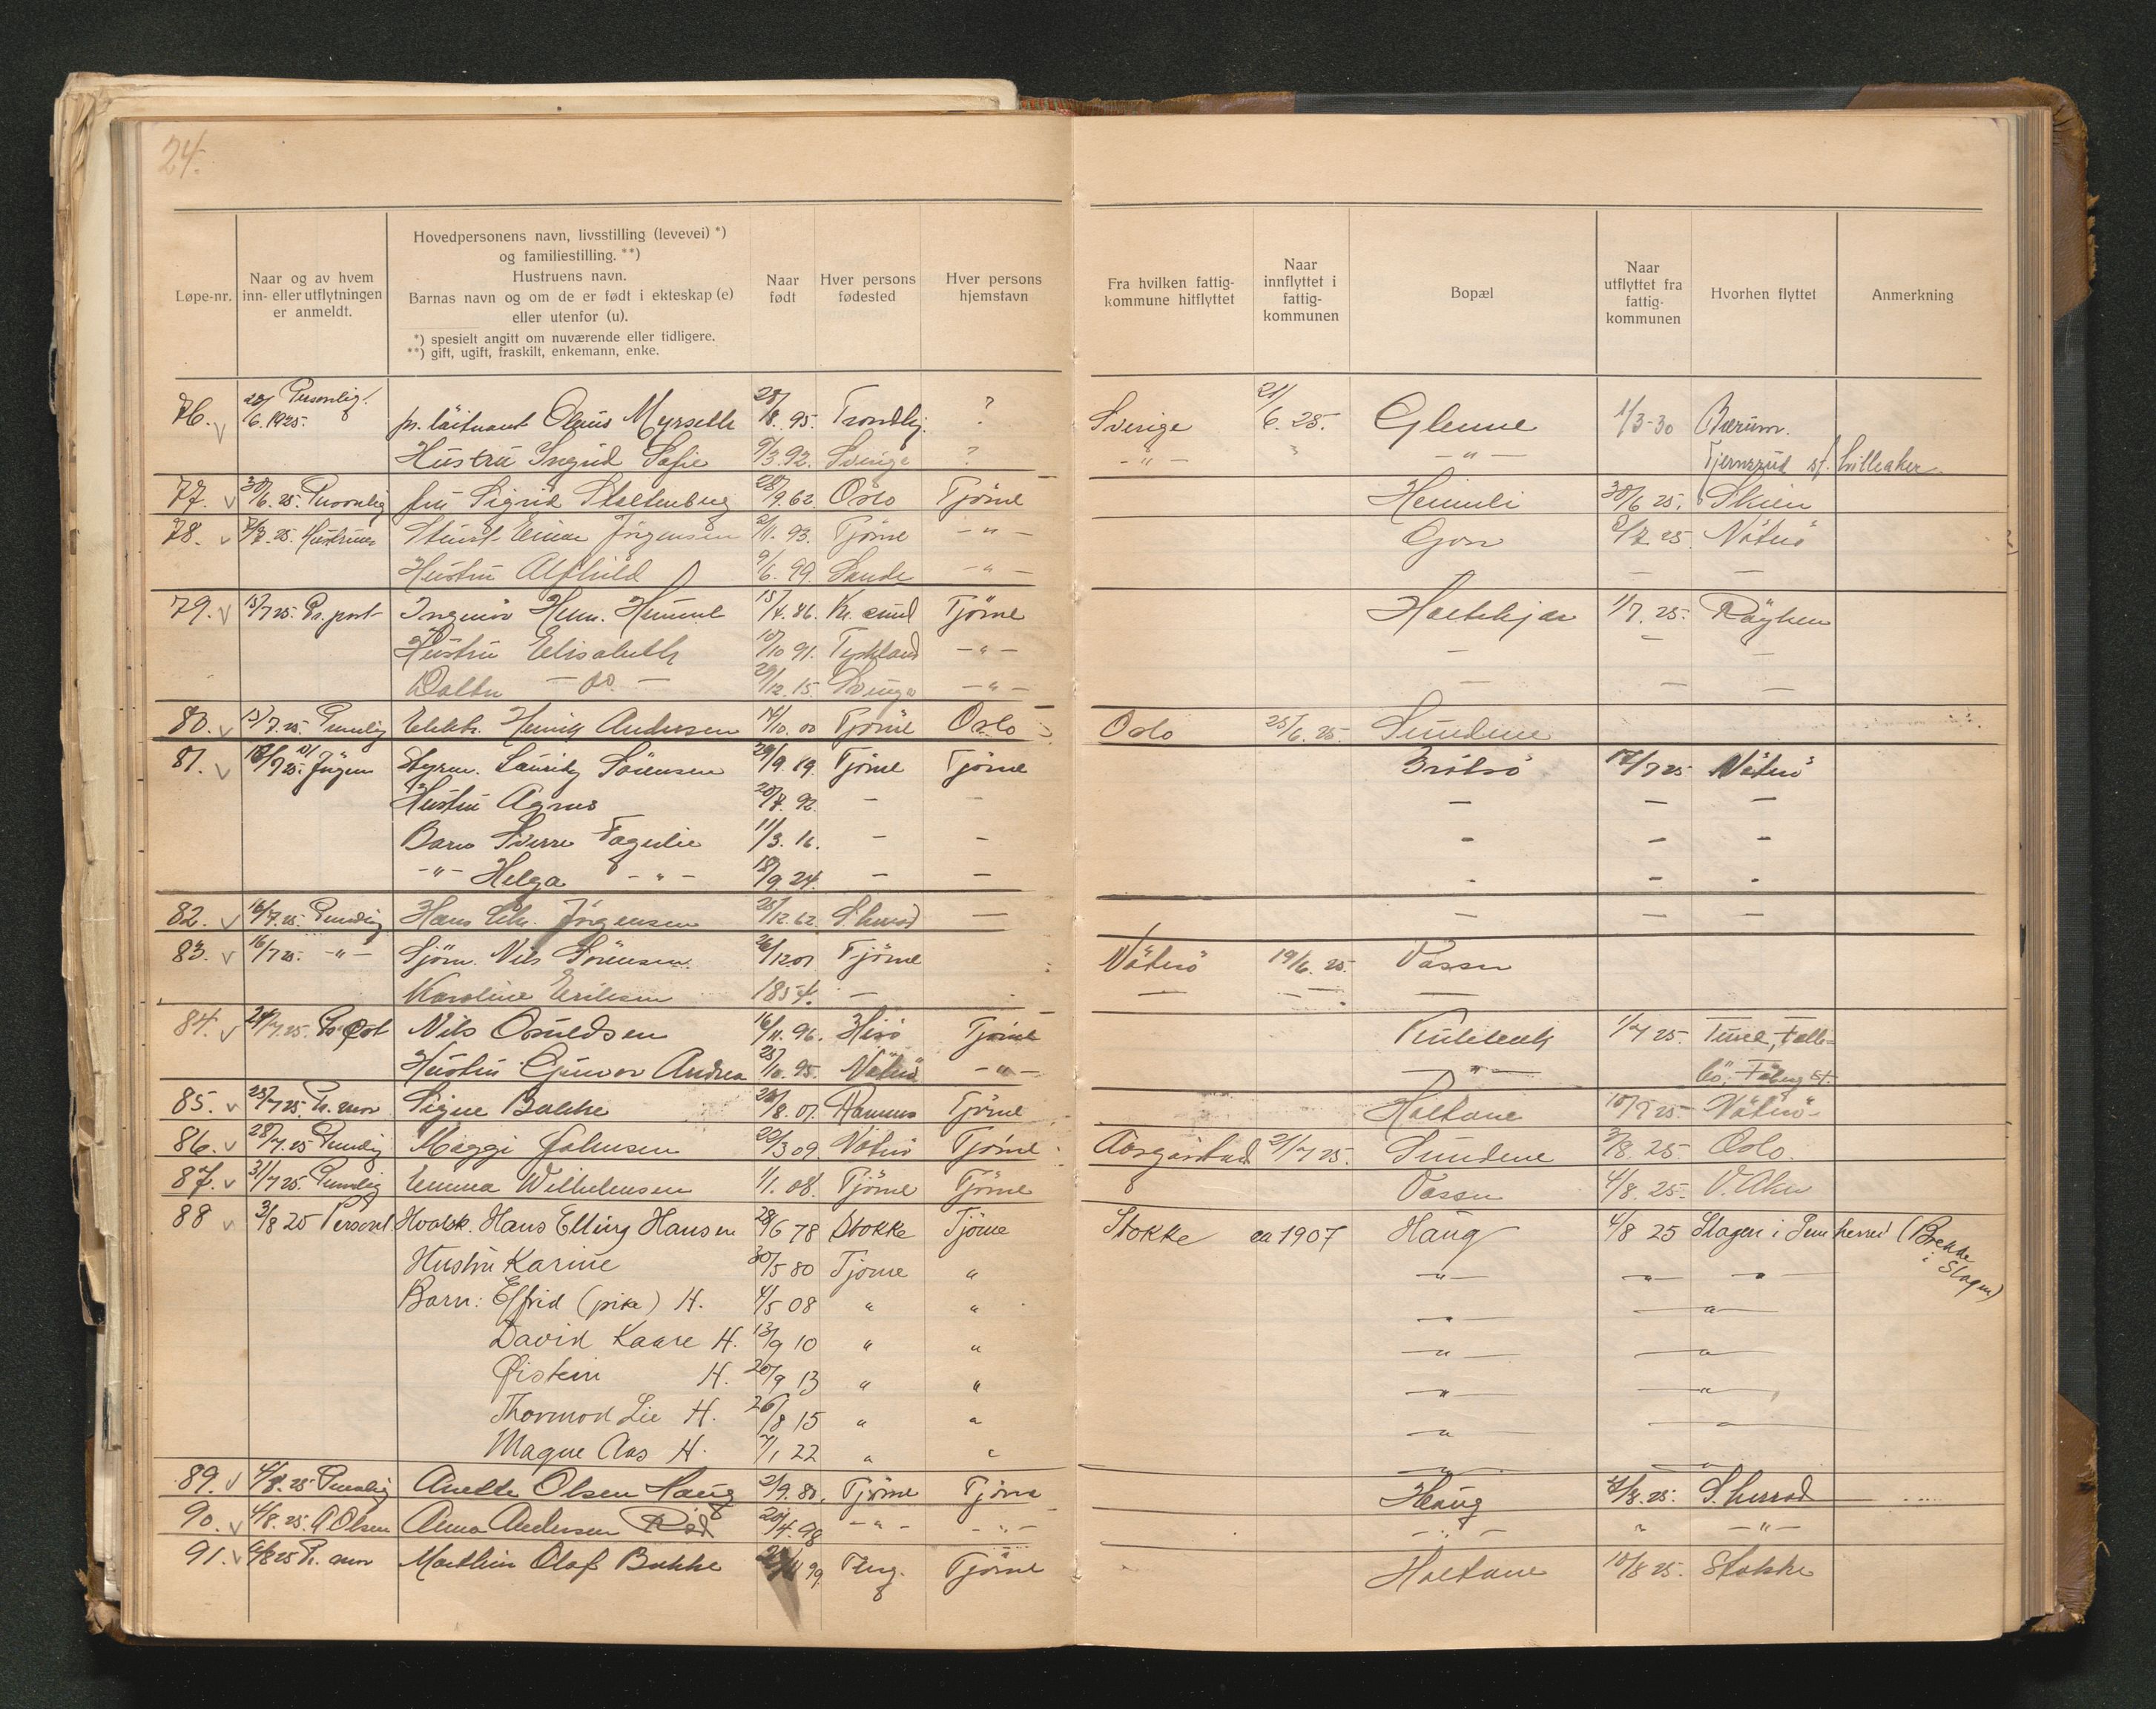 24.
Løpe-nr.
Naar og av hvem
inn- eller utflytningen
er anmeldt.
Hovedpersonens navn, livsstilling (levevei) *)
og familiestilling. **)
Hustruens navn.
Barnas navn og om de er født i ekteskap (e)
eller utenfor (u).
*) spesielt angitt om nuværende eller tidligere.
**) gift, ugift, fraskilt, enkemann, enke.
Naar
født
Hver persons
fødested
Hver persons
hjemstavn
Fra hvilken fattig-
kommune hitflyttet
Naar
innflyttet i
fattig-
kommunen
Bopæl
Naar
utflyttet fra
fattig-
kommunen
Hvorhen flyttet
Anmerkning
76. 20/6.1925. Personlig. pr. läitnant Olaus Myrseth 28/8. 95. Trondhj. ? Sverige 21/6. 25. Glenne 1/3-30 Bærum.
Hustru Ingrid Sofie 9/3.92. Sverige ? -"- " -"- Tjernsrud st. Lilleaker
77. 30/6.25. Personlig fru Sigrid Stoltenberg 28/9.62 Oslo Tjöme Heimli 30/6 25. Skien
78. 2/7.25. Hustruen Stuert Einar Jörgensen 2/11.93. Tjöme -"- Gon 2/7.25. Nöterö
Hustru Alfhild 9/6.99. Sande -"- — —
79. 15/7 25. Pr. post Ingeniör Herm. Hummel 15/4.86. Kr.sund Tjöme Holtekjær 1/7.25. Röyken
Hustru Elisabeth 10/10 91. Tyskland -"- — — —
Datter - do. - 29/12.15. Sverige -"- — — —
80. 15/7.25. Personlig Elektr. Henrik Andersen 14/10.00 Tjöme Oslo Oslo 25/6.25. Sundene
81. Styrm. Lauritz Sörensen 29/9.89. Tjöme Tjöme Brötsö 17/7 25 Nöterö
Hustru Agnes 20/7.92. — — — — —
Barn Sverre Fagerlie 11/3.16. — — - - -
-"- Helga -"- 18/9 24. — — - - -
82. 16/7.25. Personlig Hans Chr. Jörgensen 25/12.62. S.herred — — — —
83. 16/7 25. -"- Sjöm. Nils Sörensen 26/12 01 Tjöme Nöterö 19/6.25. Vassen
Karoline Eriksen 1854. — — — —
84. 24/7.25. Pr. Post Nils Osuldsen 16/11.96. Hisö Tjöme 1/7 25.
Hustru Gunvor Andrea 25/10.95. Nöterö -"- -"-
85. 28/7 25. Pr. mor Signe Bakke 26/8.07. Ramnes Tjöme Holtane 10/7 25 Nöterö
86. 28/7.25 Personlig Maggi Johnsen 22/3 09. Nöterö Tjöme Aasgårstrand 21/7 25. Sundene 3/8.25. Oslo.
87. 31/7 25. Personlig Emma Wilhelmsen 1/1.08. Tjöme Tjöme Vassen 4/8.25. V.Aker
88 3/8 25 Personl Hvalsk. Hans Elling Hansen 28/6 78 Stokke Tjöme Stokke ca 1907 Haug 4/8 25 Slagen i Sem herred (Brekke i Slagen)
Hustru Karine 30/5 80 Tjöme " -"- -"- -"-
Barn: Elfrid (pike) H. 4/5 08 " " -"- -"-
David Kaare H. 13/9 10 " " -"- -"-
Øistein H. 20/9 13 " " -"- -"-
Thormod Lie H. 26/8 15 " " -"- -"-
Magne Aas H. 7/1 22 " " -"- -"-
89. 4/8.25. Personlig Anette Olsen Haug 2/9.80. Tjöme Tjöme Haug 4/8.25. S.herred
90. 4/8.25. A Olsen Anna Andersen Röd 20/4.98 -"- -"- -"- " -"-
91. 6/8 25 Pr. mor Marthin Olaf Bakke Tbrg. Tjöme Holtane 10/8 25. Stokke